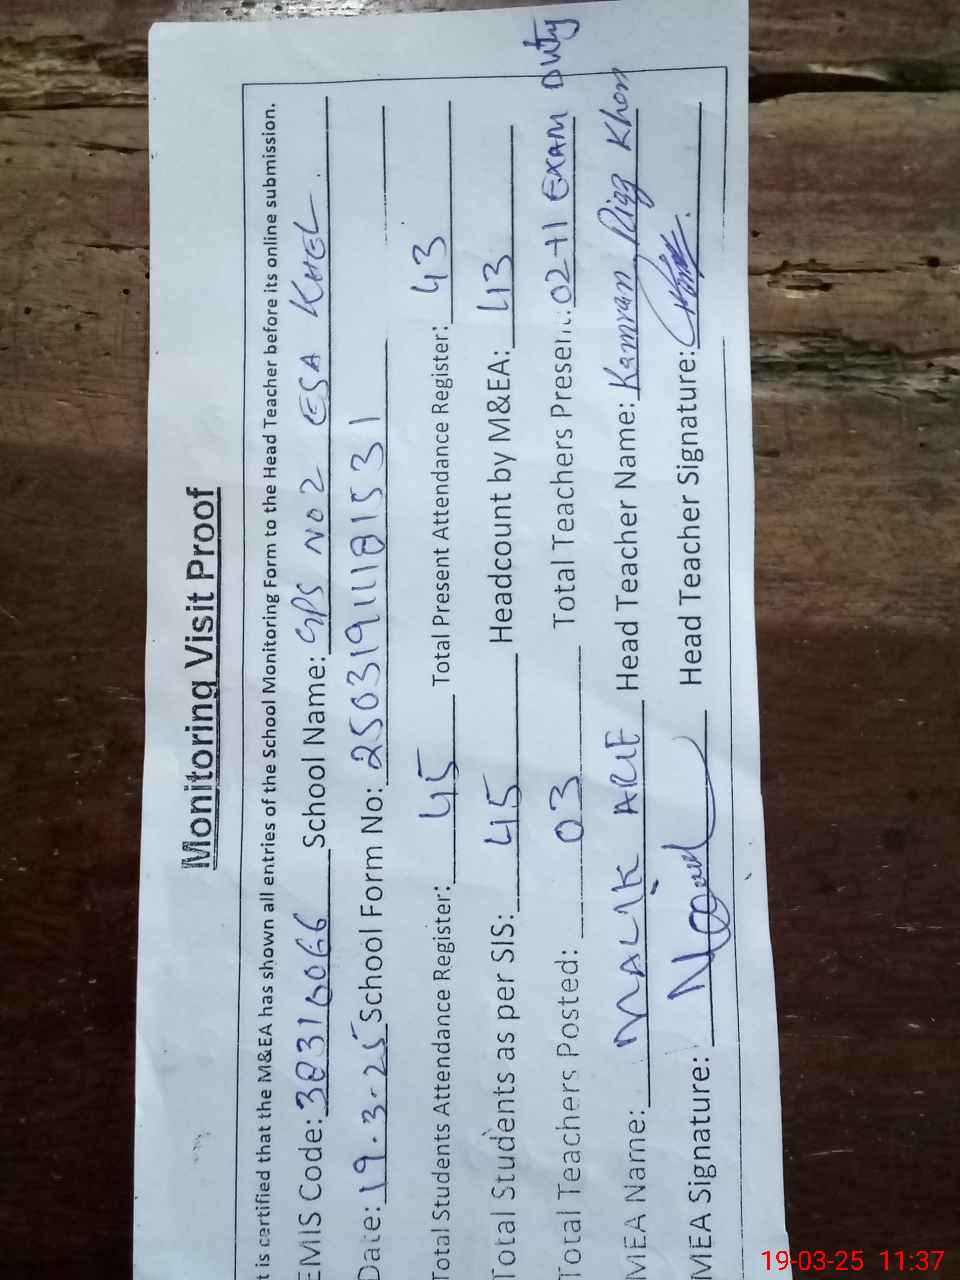 Monitoring Visit Proof
t is certified that the M&EA has shown all entries of the School Monitoring Form to the Head Teacher before its online submission.
EMIS Code: 38316066 School Name: GPS NO2 ESA KHEL
Date: 19.3.25 School Form No: 25031911181531
Total Students Attendance Register: 45 Total Present Attendance Register: 43
Total Students as per SIS: 45 Headcount by M&EA: 43
Total Teachers Posted: 03 Total Teachers Present: 02+1 EXAM Duty
MEA Name: MALIK Head Teacher Name: Kamran Riaz Khan
MEA Signature: Head Teacher Signature:
19-03-25 11:37